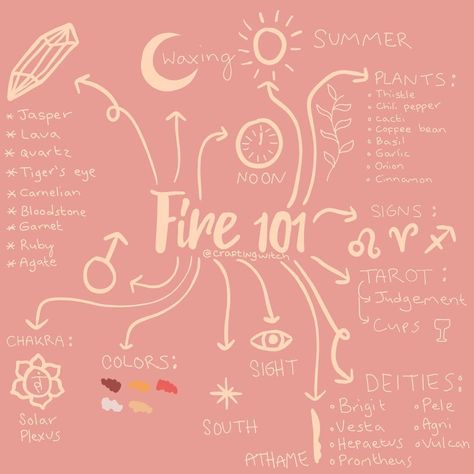 Waxing
SUMMER
PLANTS:
Thistle
Chili pepper
Cacti
Coffee bean
Basil
Garlic
Onion
Cinnamon
* Jasper
* Lava
* Quartz
* Tiger's eye
* Carnelian
* Bloodstone
* Garnet
* Ruby
* Agate
NOON
Fire 101
@craftingwitch
SIGNS:
TAROT:
Judgement
Cups
CHAKRA:
Solar
Plexus
COLORS:
SIGHT
SOUTH
ATHAME
DEITIES:
• Brigit
• Vesta
• Hepaetus
• Promtheus
• Pele
• Agni
• Vulcan